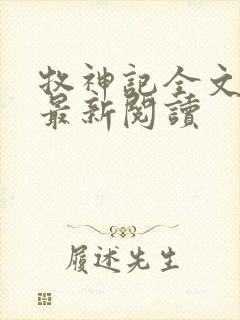 牧神記全文
最新閱讀
履述先生